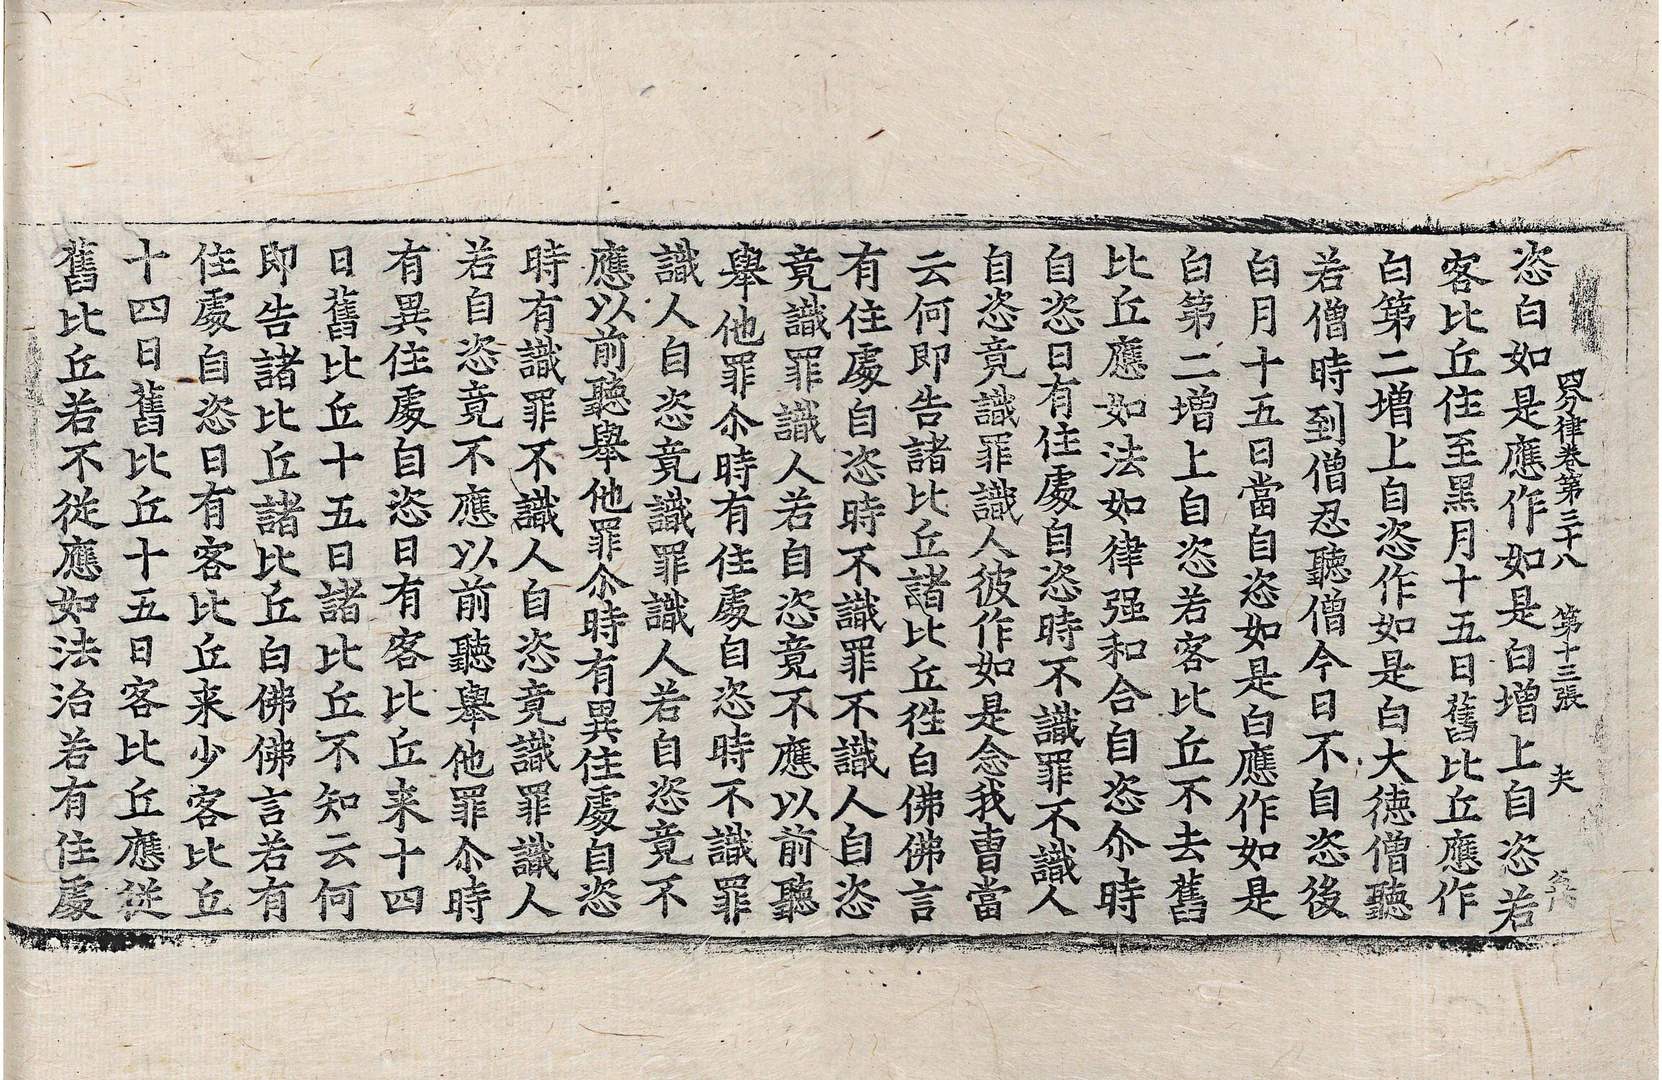 四分律卷第三十八 第十三張 夫
恣白如是應作如是白增上自恣若
客比丘住至黑月十五日舊比丘應作
白第二增上自恣作如是白大德僧聽
若僧時到僧忍聽僧今日不自恣後
白月十五日當自恣如是白應作如是
白第二增上自恣若客比丘不去舊
比丘應如法如律强和合自恣尒時
自恣日有住處自恣時不識罪不識人
自恣竟識罪識人彼作如是念我曹當
云何即告諸比丘諸比丘徃白佛佛言
有住處自恣時不識罪不識人自恣
竟識罪識人若自恣竟不應以前聽
舉他罪尒時有住處自恣時不識罪
識人自恣竟識罪識人若自恣竟不
應以前聽舉他罪尒時有異住處自恣
時有識罪不識人自恣竟識罪識人
若自恣竟不應以前聽舉他罪尒時
有異住處自恣日有客比丘来十四
日舊比丘十五日諸比丘不知云何
即告諸比丘諸比丘白佛佛言若有
住處自恣日有客比丘来少客比丘
十四日舊比丘十五日客比丘應從
舊比丘若不從應如法治若有住處